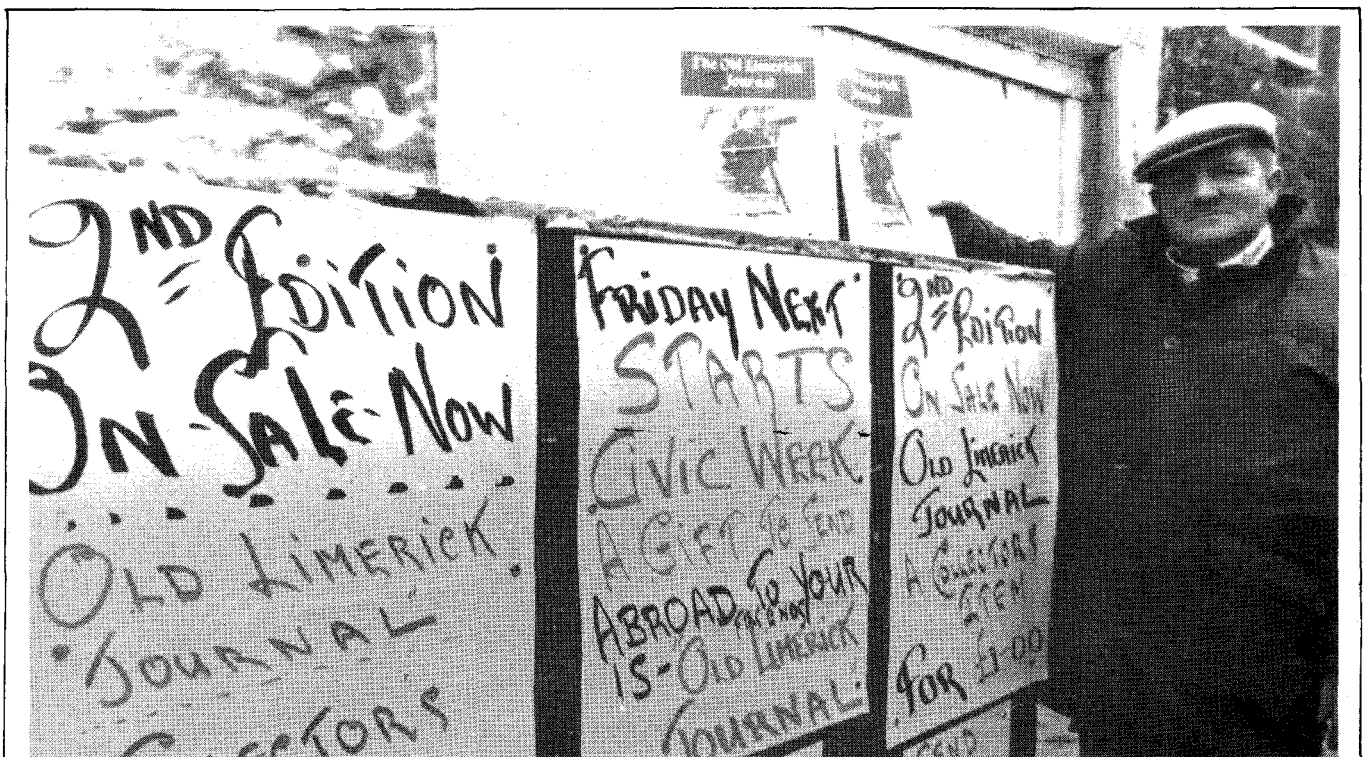 The Old Limerick
Journal
2ND EDITION
ON-SALE-NOW
OLD LIMERICK
JOURNAL
FRIDAY NEXT
STARTS
CIVIC WEEK
A GIFT TO SEND
ABROAD TO YOUR
FRIENDS
IS-OLD LIMERICK
JOURNAL.
2ND EDITION
ON SALE NOW
OLD LIMERICK
JOURNAL
A COLLECTORS
ITEM
FOR £1-00
SEND